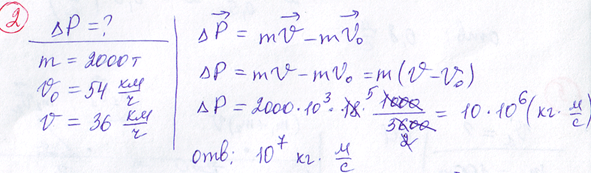 2
ΔP = ?
m = 2000т
v₀ = 54 км/ч
v = 36 км/ч
ΔP⃗ = mv⃗ - mv⃗₀
ΔP = mv - mv₀ = m(v - v₀)
ΔP = 2000·10³·18·5 1000/3600 2 = 10·10⁶(кг·м/с)
отв: 10⁷ кг·м/с